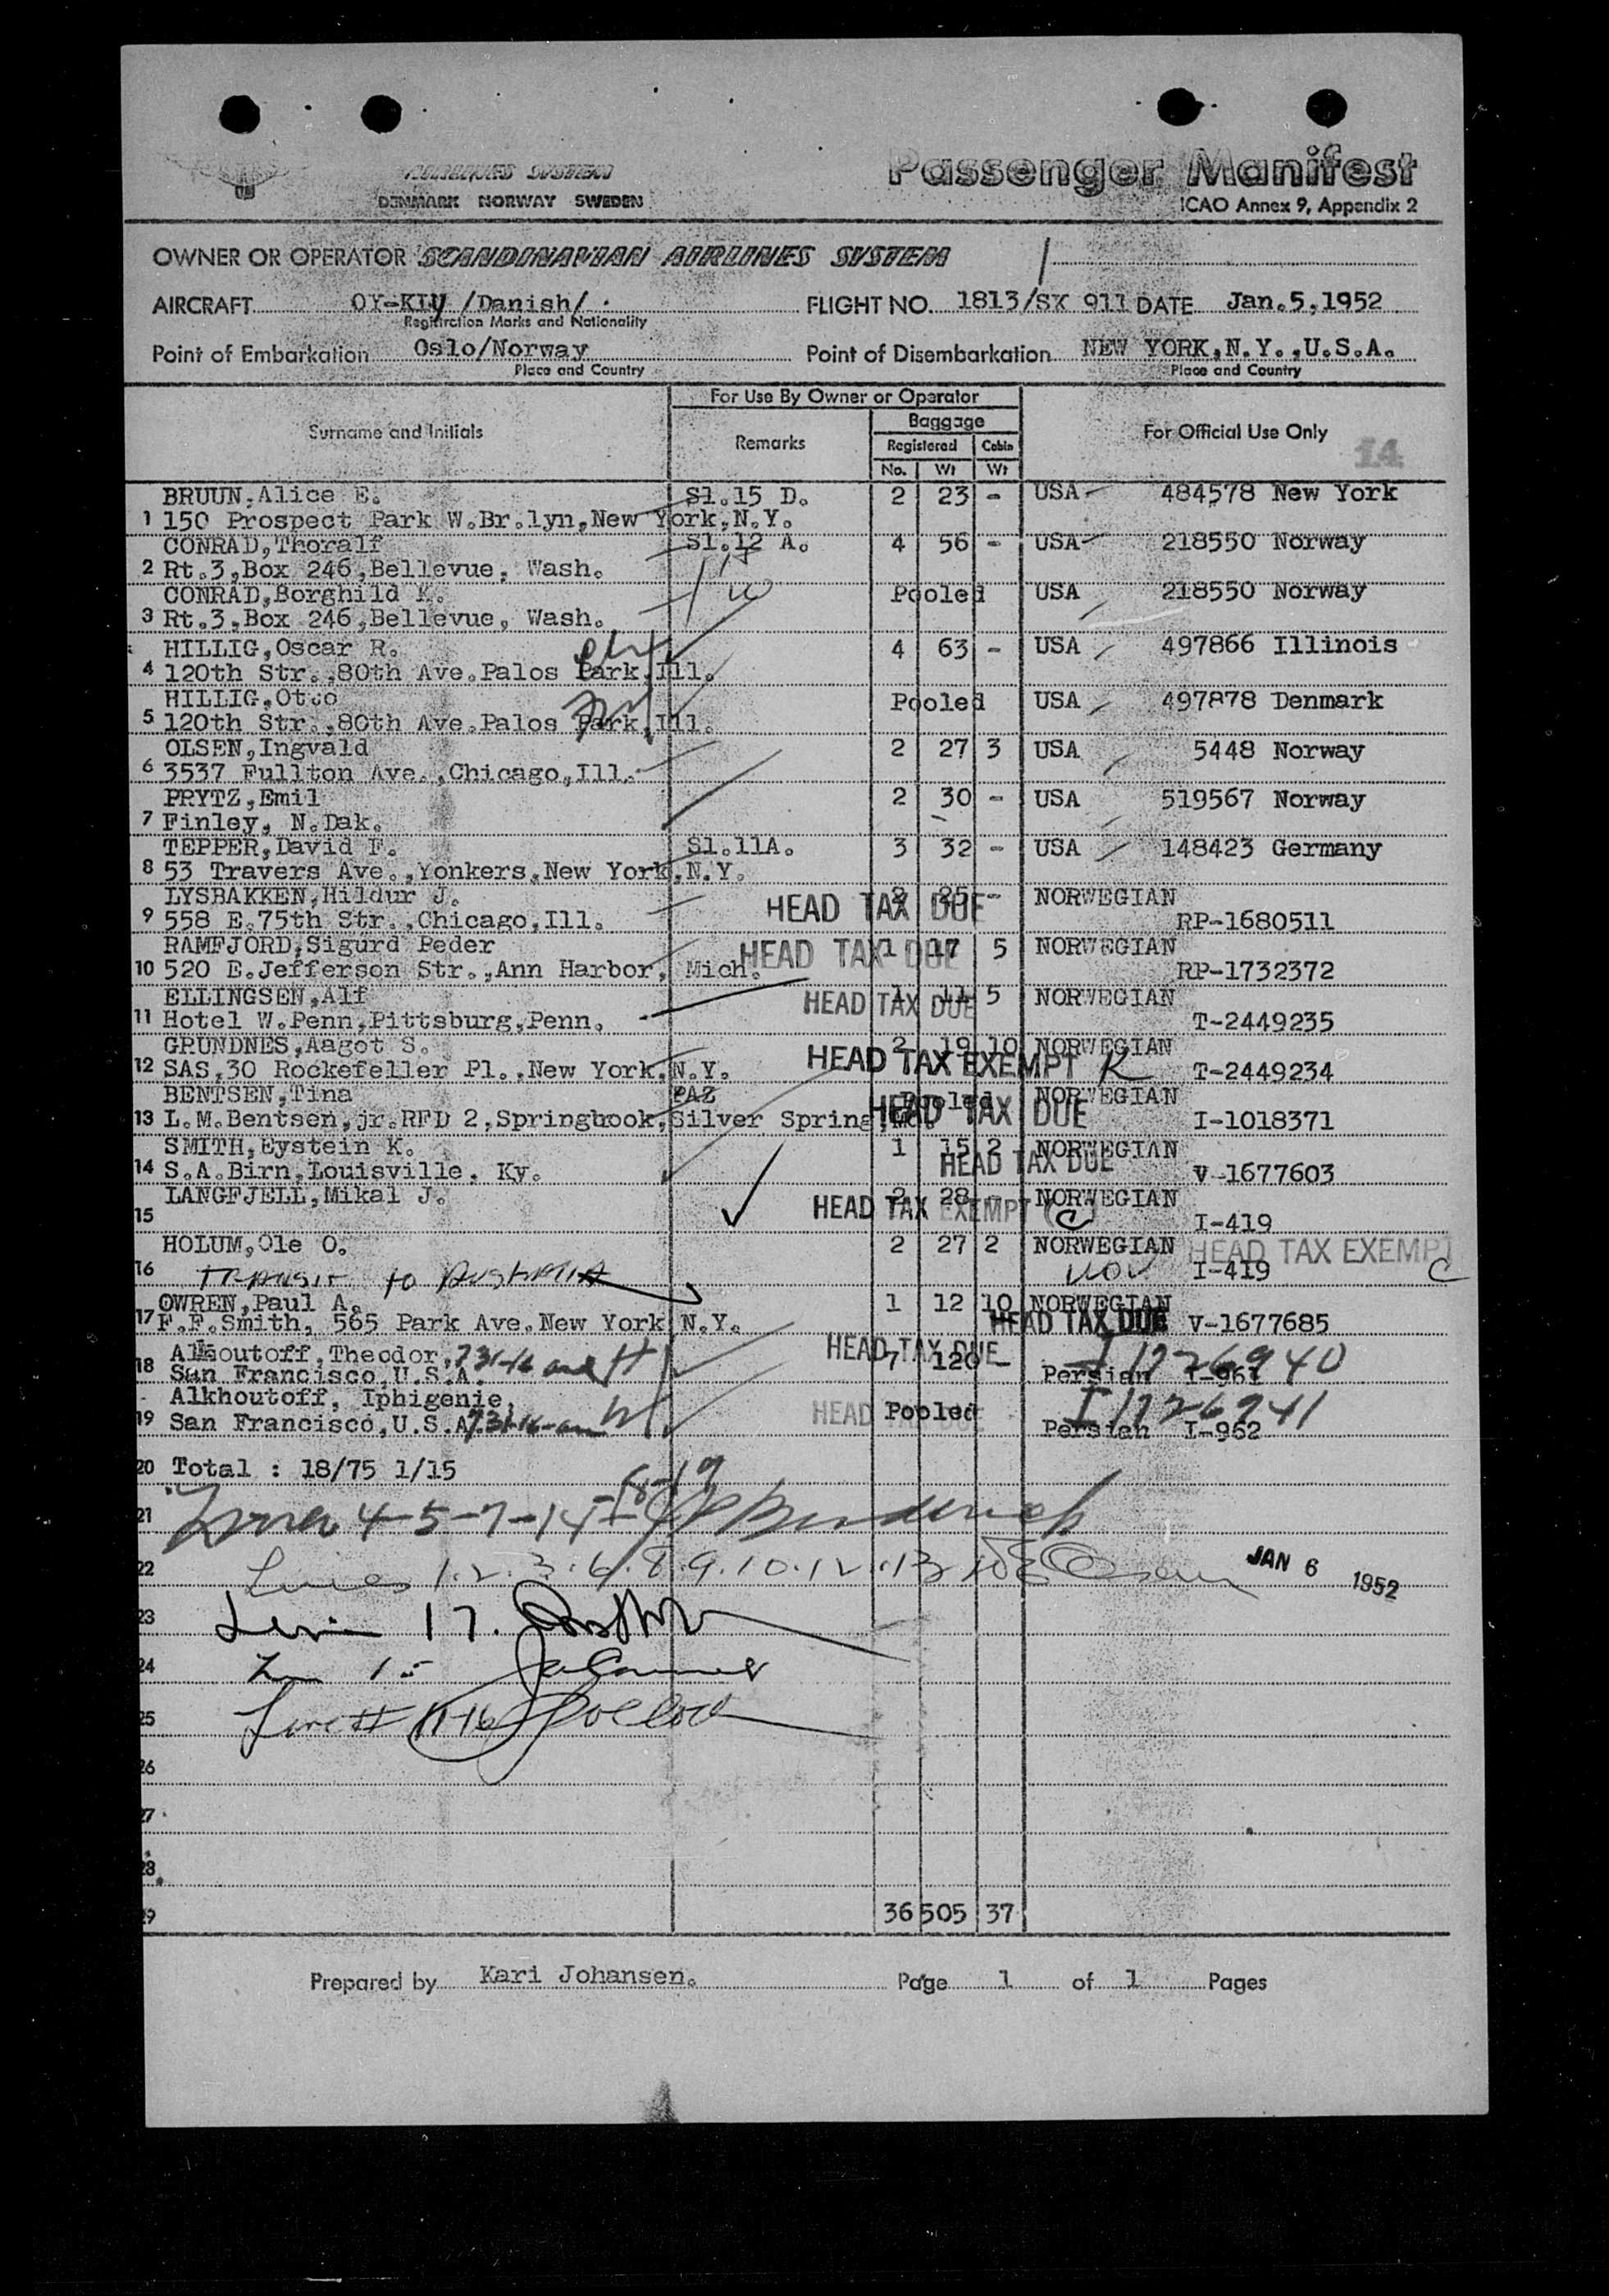 AIRLINES SYSTEM
DENMARK NORWAY SWEDEN
Passenger Manifest
ICAO Annex 9, Appendix 2
OWNER OR OPERATOR SCANDINAVIAN AIRLINES SYSTEM
AIRCRAFT OY-KIU /Danish/. FLIGHT NO. 1813/SK 911 DATE Jan.5,1952
Registration Marks and Nationality
Point of Embarkation Oslo/Norway Point of Disembarkation NEW YORK,N.Y.,U.S.A.
Place and Country Place and Country
For Use By Owner or Operator
Surname and Initials Remarks Baggage For Official Use Only
Registered Cabin 14
No. Wt Wt
BRUUN,Alice E. Sl.15 D. 2 23 - USA 484578 New York
1 150 Prospect Park W.Br.lyn,New York,N.Y.
CONRAD,Thoralf Sl.12 A. 4 56 - USA 218550 Norway
2 Rt.3,Box 246,Bellevue, Wash.
CONRAD,Borghild K. Pooled USA 218550 Norway
3 Rt.3,Box 246,Bellevue, Wash.
HILLIG,Oscar R. 4 63 - USA 497866 Illinois
4 120th Str.,80th Ave.Palos Park,Ill.
HILLIG,Otto Pooled USA 497878 Denmark
5 120th Str.,80th Ave.Palos Park,Ill.
OLSEN,Ingvald 2 27 3 USA 5448 Norway
6 3537 Fullton Ave.,Chicago,Ill.
PRYTZ,Emil 2 30 - USA 519567 Norway
7 Finley, N.Dak.
TEPPER,David F. Sl.11A. 3 32 - USA 148423 Germany
8 53 Travers Ave.,Yonkers,New York,N.Y.
LYSBAKKEN,Hildur J. 2 25 - NORWEGIAN
9 558 E.75th Str.,Chicago,Ill. HEAD TAX DUE RP-1680511
RAMFJORD,Sigurd Peder 1 17 5 NORWEGIAN
10 520 E.Jefferson Str.,Ann Harbor, Mich. HEAD TAX DUE RP-1732372
ELLINGSEN,Alf 1 11 5 NORWEGIAN
11 Hotel W.Penn,Pittsburg,Penn. HEAD TAX DUE T-2449235
GRUNDNES,Aagot S. 2 19 10 NORWEGIAN
12 SAS,30 Rockefeller Pl.,New York,N.Y. HEAD TAX EXEMPT K T-2449234
BENTSEN,Tina PAZ Pooled NORWEGIAN
13 L.M.Bentsen,jr.RFD 2,Springbrook,Silver Spring HEAD TAX DUE I-1018371
SMITH,Eystein K. 1 15 2 NORWEGIAN
14 S.A.Birn,Louisville, Ky. HEAD TAX DUE V-1677603
LANGFJELL,Mikal J. 2 28 - NORWEGIAN
15 HEAD TAX EXEMPT C I-419
HOLUM,Ole O. 2 27 2 NORWEGIAN HEAD TAX EXEMPT
16 TRANSIT to AUSTRALIA I-419 C
OWREN,Paul A. 1 12 10 NORWEGIAN
17 F.F.Smith, 565 Park Ave.New York N.Y. HEAD TAX DUE V-1677685
Alkhoutoff,Theodor, HEAD TAX DUE 7 120 - I 1726940
18 San Francisco,U.S.A. Persian I-961
Alkhoutoff, Iphigenie, HEAD TAX DUE Pooled I 1726941
19 San Francisco,U.S.A. Persian I-962
20 Total : 18/75 1/15
21 Lines 4-5-7-14-18-19
22 Lines 1.2.3.6.8.9.10.12.13 JAN 6 1952
23 Line 17.
24 15
25 Line # 11-16
26
27
28
29 36 505 37
Prepared by Kari Johansen. Page 1 of 1 Pages